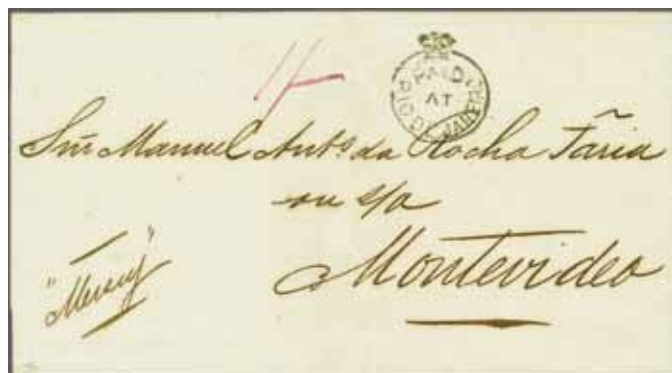 1/-
PAID
AT
RIO DE JANEIRO
Snr Manuel Anto. da Rocha Faria
ou s/o
Montevideo
"Mersey"